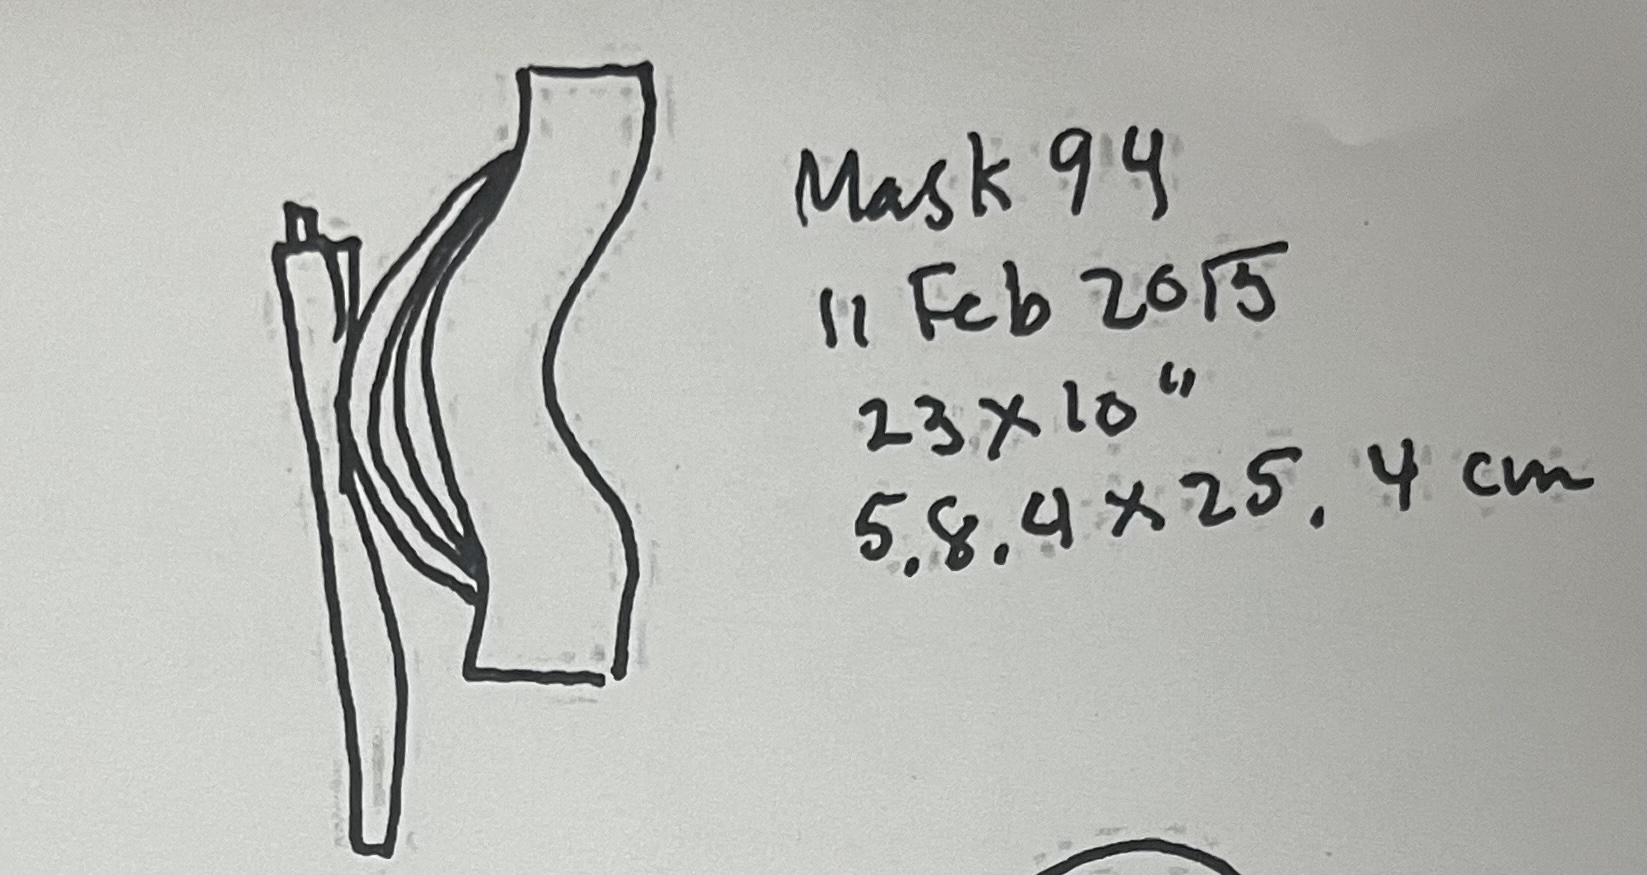 Mask 94
11 Feb 2015
23 x 10"
5.8.4 x 25.4 cm